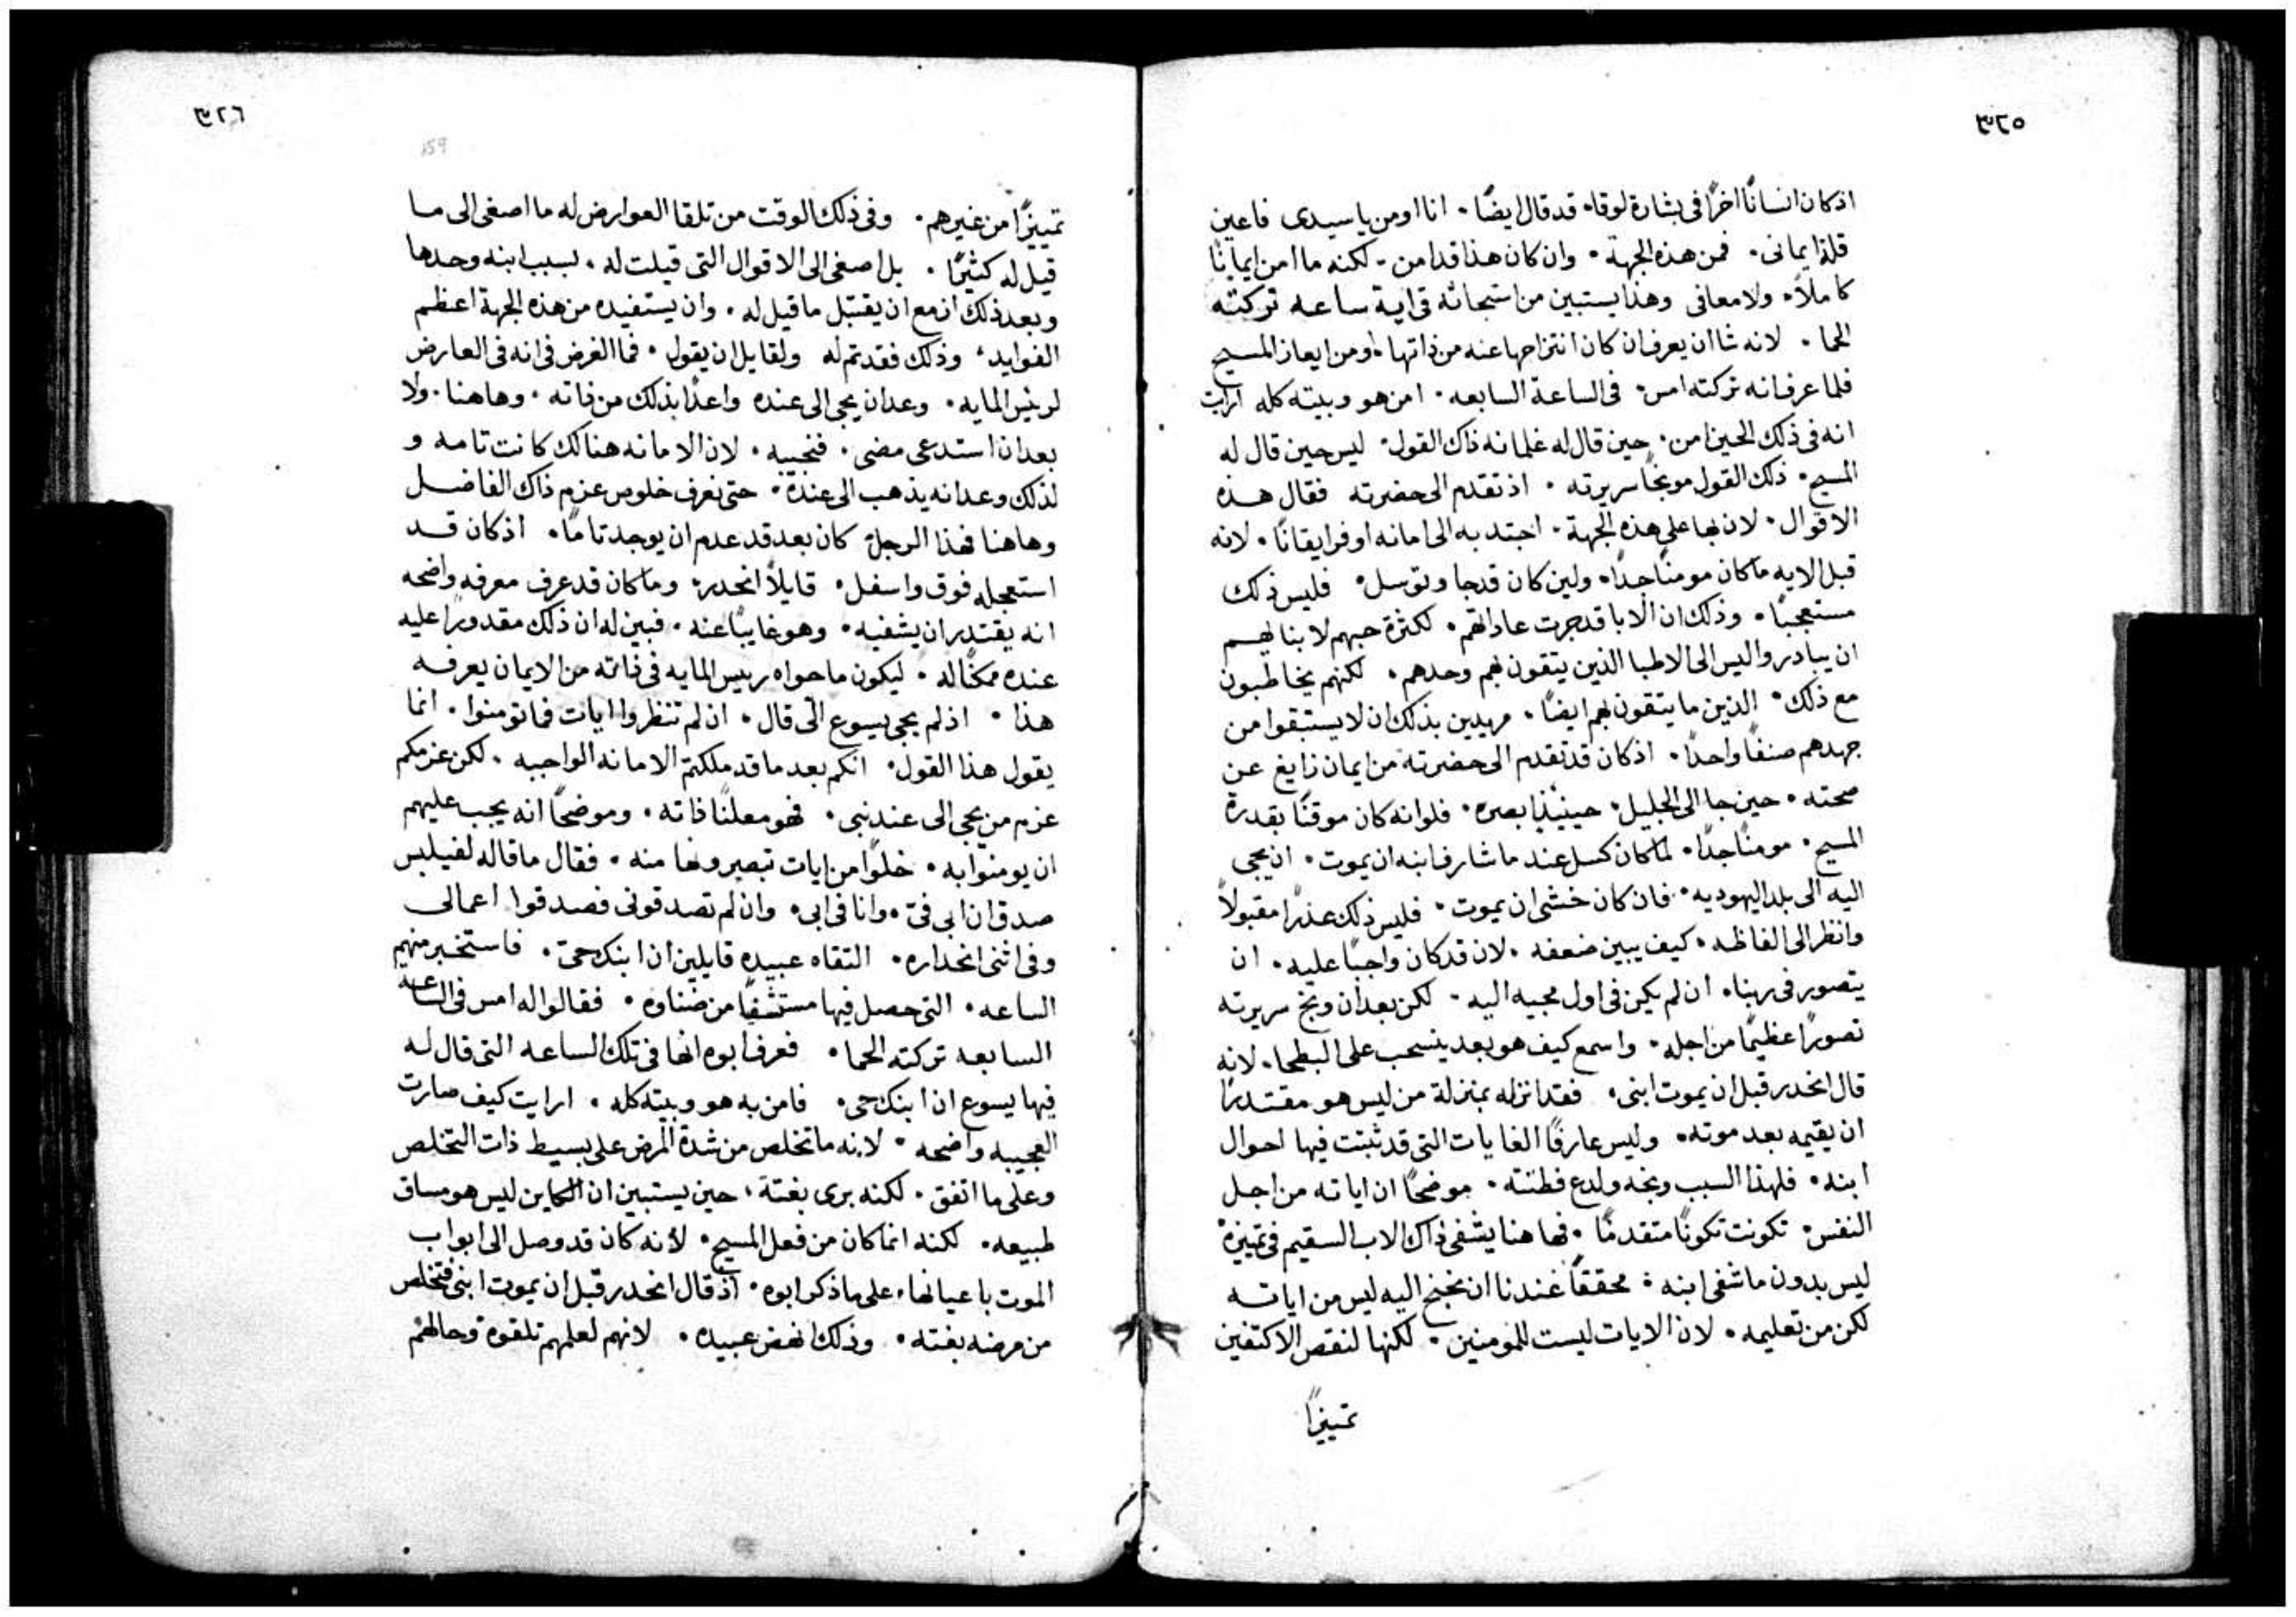 ٣٢٥
اذ كان انسانًا اخرًا في بشارة لوقا٠ قد قال ايضًا٠ انا اومن يا سيدى فاعين
قلة ايمانى٠ فمن هذه الجهة٠ وان كان هذا قد امن٠ لكنه ما امن ايمانًا
كاملاً٠ ولا معافى وهذا يستبين من استجاثه فى اية ساعه تركته
الحما٠ لانه شا ان يعرف ان كان انتزاحها عنه من ذاتها٠ او من ايعاز المسيح
فلما عرف انه تركته امس٠ فى الساعة السابعه٠ امن هو وبيته كله ارايت
انه فى ذلك الحين امن٠ حين قال له غلمانه ذاك القول٠ ليس حين قال له
المسيح٠ ذلك القول موبخًا سريرته٠ اذ تقدم الى حضرته فقال هذه
الاقوال٠ لان بها على هذه الجهة٠ اجتذبه الى امانه اوفر ايقانًا٠ لانه
قبل الايه ما كان مومنًا جدًا٠ ولين كان قد جا وتوسل٠ فليس ذلك
مستعجبًا٠ وذلك ان الابا قد جرت عاداتهم٠ لكثرة حبهم لابنا لهم
ان يبادروا ليس الى الاطبا الذين يتقون بهم وحدهم٠ لكنهم يخاطبون
مع ذلك٠ الذين ما يتقون بهم ايضًا٠ مريدين بذلك ان لا يستبقوا من
جهدهم صنفًا واحدًا٠ اذ كان قد تقدم الى حضرته من ايمان زايغ عن
صحته٠ حين جا الى الجليل٠ حينيذٍ ابصره٠ فلو انه كان موقنًا بقدرة
المسيح٠ مومنًا جدًا٠ لما كان كسل عند ما شارف ابنه ان يموت٠ ان يجى
اليه الى بلد اليهوديه٠ فان كان خشى ان يموت٠ فليس ذلك عذرًا مقبولاً
وانظر الى الفاظه٠ كيف يبين ضعفه٠ لان قد كان واجبًا عليه٠ ان
يتصور فى ربنا٠ ان لم يكن فى اول مجيه اليه٠ لكن بعد ان وبخ سريرته
تصورًا عظيمًا من اجله٠ واسمع كيف هو بعد ينسحب على البطحا٠ لانه
قال انحدر قبل ان يموت ابنى٠ فقد انزله بمنزلة من ليس هو مقتدرًا
ان يقيمه بعد موته٠ وليس عارفًا الغايات التى قد ثبتت فيها احوال
ابنه٠ فلهذا السبب وبخه ولدع فطنته٠ موضحًا ان اياته من اجل
النفس٠ تكونت تكونًا متقدمًا٠ فها هنا يشفى ذاك الاب السقيم فى تميزهْ
ليس بدون ما شفى ابنه٠ محققًا عندنا ان نجنح اليه ليس من اياته
لكن من تعليمه٠ لان الايات ليست للمومنين٠ لكنها لنقص الاكتفين
تمييزًا
٣٢٦
159
تمييزًا من غيرهم٠ وفى ذلك الوقت من تلقا العوارض له ما اصغى الى ما
قيل له كثيرًا٠ بل اصغى الى الاقوال التى قيلت له٠ بسبب ابنه وحدها
وبعد ذلك ازمع ان يقتبل ما قيل له٠ وان يستفيده من هذه الجهة اعظم
الفوايد٠ وذلك فقد تم له ولقايل ان يقول٠ فما الغرض فى انه فى العارض
لريس المايه٠ وعد ان يجى الى عنده واعدًا بذلك من ذاته٠ وهاهنا٠ ولا
بعد ان استدعى مضى٠ فنجيبه٠ لان الامانه هنالك كانت تامه و
لذلك وعد انه يذهب الى عنده٠ حتى نعرف خلوص عزم ذاك الفاضل
وهاهنا فهذا الرجل كان بعد قد عدم ان يوجد تامًا٠ اذ كان قد
استعجله فوق واسفل٠ قايلاً انحدر٠ وما كان قد عرف معرفه واضحه
انه يقتدر ان يشفيه٠ وهو غايبًا عنه٠ فبين له ان ذلك مقدورًا عليه
عنده ممكنًا له٠ ليكون ما حواه ريس المايه فى ذاته من الايمان يعرفه
هذا٠ اذ لم يجى يسوع الىّ قال٠ ان لم تنظروا ايات فما تومنوا٠ انما
يقول هذا القول٠ انكم بعد ما قد ملكتم الامانه الواجبه٠ لكن عزمكم
عزم من يجى الى عند نبى٠ فهو معلنًا ذاته٠ وموضحًا انه يجب عليهم
ان يومنوا به٠ خلوًا من ايات تبصرونها منه٠ فقال ما قاله لفيلبس
صدق ان ابى فىّ٠ وانا فى ابى٠ وان لم تصدقونى فصدقوا اعمالى
وفى اثنى انحداره٠ التقاه عبيده قايلين ان ابنك حىّ٠ فاستخبر منهم
الساعه٠ التى حصل فيها مستشفيًا من ضناوه٠ فقالوا له امس فى الساعة
السابعه تركته الحما٠ فعرف ابوه انها فى تلك الساعه التى قال له
فيها يسوع ان ابنك حى٠ فامن به هو وبيته كله٠ ارايت كيف صارت
العجيبه واضحه٠ لانه ما تخلص من شدة المرض على بسيط ذات التخلص
وعلى ما اتفق٠ لكنه برى بغتة٠ حين يستبين ان الكاين ليس هو مساق
طبيعه٠ لكنه انما كان من فعل المسيح٠ لأنه كان قد وصل الى ابواب
الموت باعيانها٠ على ما ذكر ابوه٠ اذ قال انحدر قبل ان يموت ابنى فتخلص
من مرضه بغته٠ وذلك نهض عبيده٠ لانهم لعلمهم تلقوه وحالهم